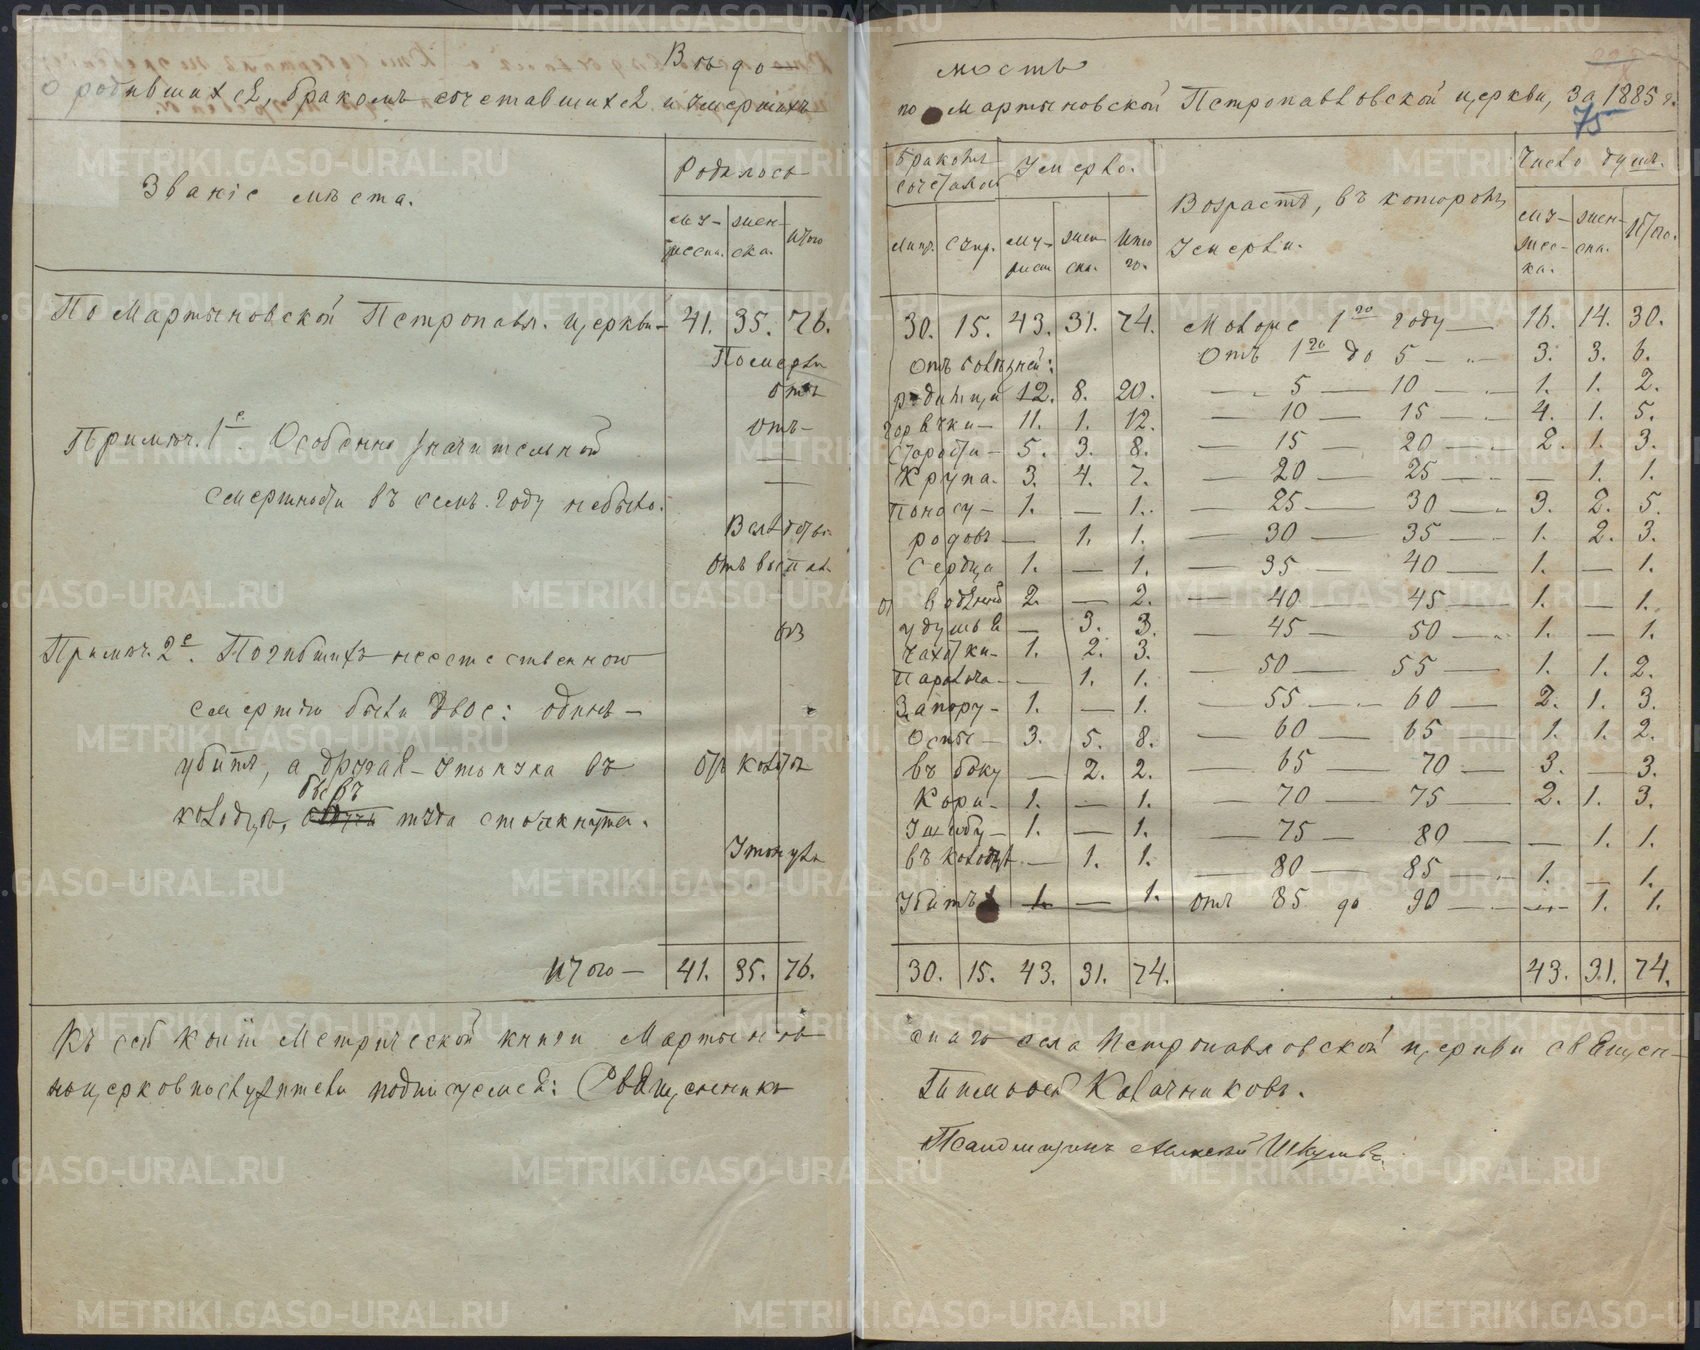 Вѣдо—
о родившихся, бракомъ сочетавшихся и умершихъ
Званіе мѣста.
Родилось
му-
жеска.
жен-
ска.
Итого
По Мартыновской Петропавл. церкви— 41. 35. 76.
Померли
отъ
Примѣч. 1е. Особенно значительной
отъ—
смертности въ семъ году небыло.
Примѣч. 2е. Погибшихъ неестественною
смертію были двое: одинъ—
убитъ, а другая—утонула въ
колодцѣ, бывъ туда столкнута.
Утонула
Итого— 41. 35. 76.
Къ сей копіи Метрической книги Мартынов-
ноцерковнослужители подписуемся: Священникъ
мость
по Мартыновской Петропавловской церкви, за 1885 г.
75
бракомъ
сочеталось
Умерло.
Возрастъ, въ которомъ
Умерли.
Число душъ.
му-
жес-
ка.
жен-
ска.
Итого.
30. 15. 43. 31. 74. Моложе 1го году — 16. 14. 30.
Отъ болѣзней: Отъ 1го до 5 — 3. 3. 6.
родимца 12. 8. 20. — 5 — 10 — 1. 1. 2.
горячки— 11. 1. 12. — 10 — 15 — 4. 1. 5.
старости— 5. 3. 8. — 15 — 20 — 2. 1. 3.
Крупа. 3. 4. 7. — 20 — 25 — — 1. 1.
Поносу— 1. — 1. — 25 — 30 — 3. 2. 5.
родовъ — 1. 1. — 30 — 35 — 1. 2. 3.
Сердца 1. — 1. — 35 — 40 — 1. — 1.
водяной 2. — 2. — 40 — 45 — 1. — 1.
удушья — 3. 3. — 45 — 50 — 1. — 1.
Чахотки— 1. 2. 3. — 50 — 55 — 1. 1. 2.
Паралича— — 1. 1. — 55 — 60 — 2. 1. 3.
Запору— 1. — 1. — 60 — 65 — 1. 1. 2.
Оспы— 3. 5. 8. — 65 — 70 — 3. — 3.
въ боку — 2. 2. — 70 — 75 — 2. 1. 3.
Кори— 1. — 1. — 75 — 80 — — 1. 1.
Ушибу— 1. — 1. — 80 — 85 — 1. — 1.
въ колодцѣ — 1. 1. отъ 85 до 90 — — 1. 1.
Убитъ 1. — 1.
30. 15. 43. 31. 74. 43. 31. 74.
скаго села Петропавловской церкви священ-
Колачниковъ.
Псаломщикъ Алексей
METRIKI.GASO-URAL.RU